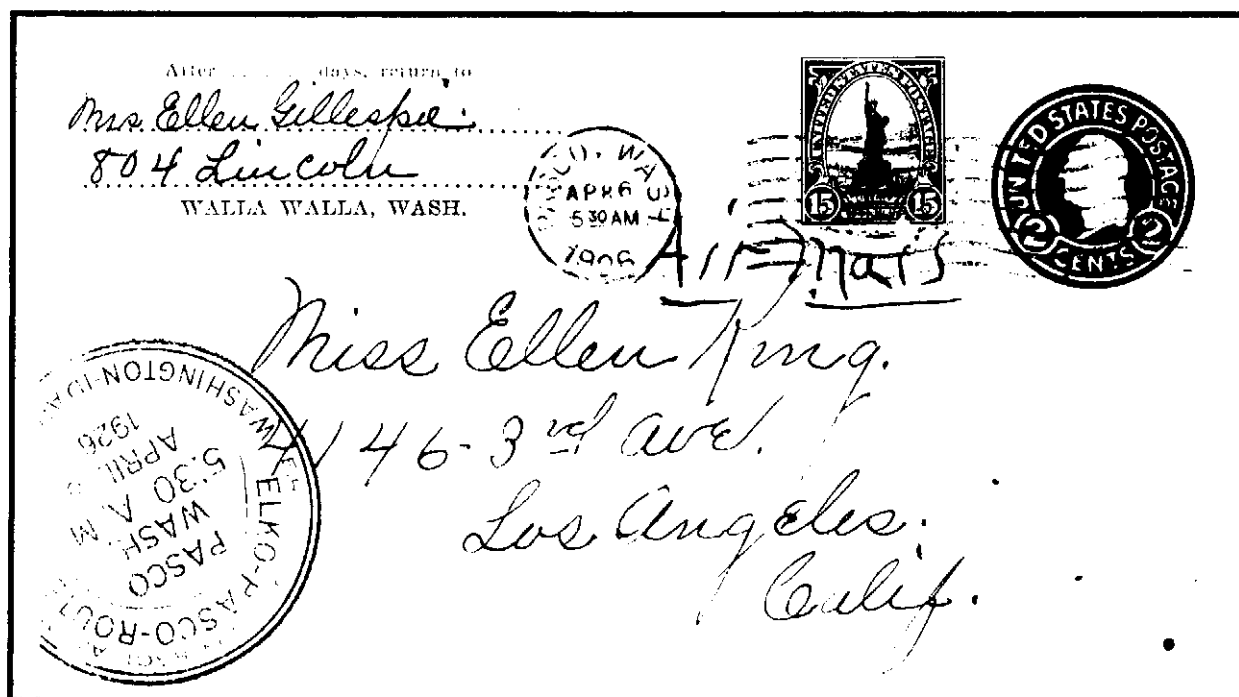 After days, return to
Mrs. Ellen Gillespie.
804 Lincoln
WALLA WALLA, WASH.
WASH.
APR 6
5 30 AM
1926
UNITED STATES POSTAGE
15 15
UNITED STATES POSTAGE
2 2
CENTS
Air Mail
Miss Ellen King.
4146-3rd ave.
Los Angeles.
Calif.
ELKO-PASCO-ROUTE
PASCO
WASH.
5:30 A. M
APRIL
1926